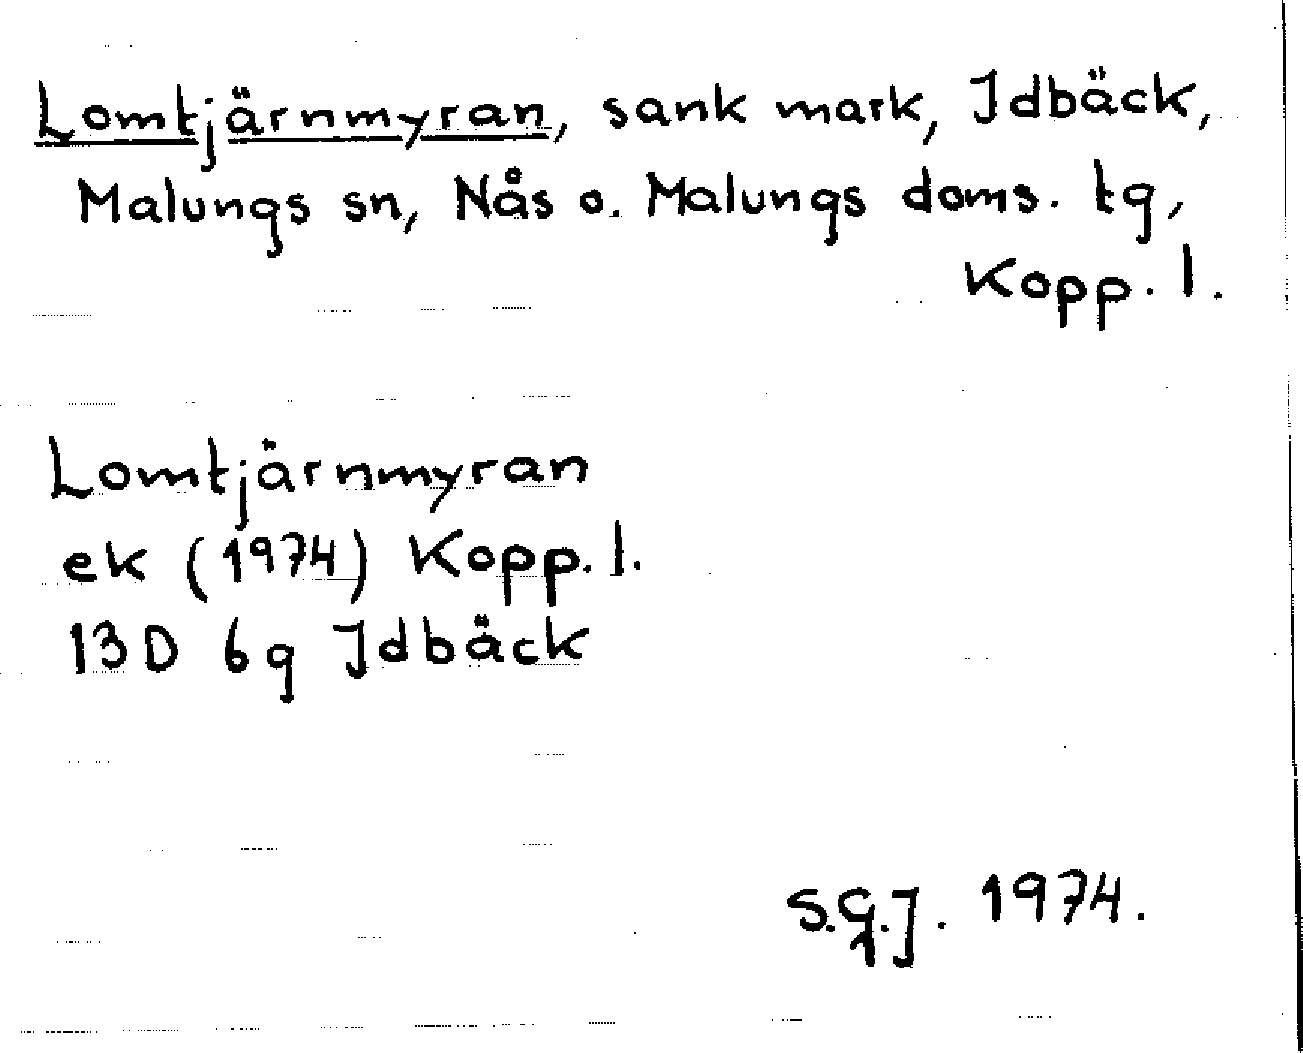 Lomtjärnmyran, sank mark, Idbäck,
Malungs sn, Nås o. Malungs doms. tg,
Kopp. l.
Lomtjärnmyran
ek (1974) Kopp. l.
13D 6g Idbäck
S.G.J. 1974.